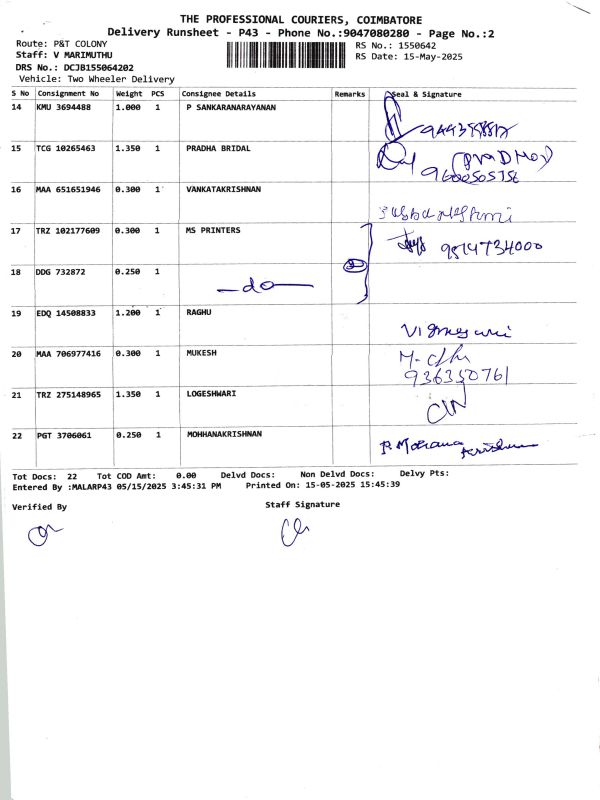 THE PROFESSIONAL COURIERS, COIMBATORE
Delivery Runsheet - P43 - Phone No.:9047080280 - Page No.:2
Route: P&T COLONY
RS No.: 1550642
Staff: V MARIMUTHU
RS Date: 15-May-2025
DRS No.: DCJB155064202
Vehicle: Two Wheeler Delivery
S No Consignment No Weight PCS Consignee Details Remarks Seal & Signature
14 KMU 3694488 1.000 1 P SANKARANARAYANAN
15 TCG 10265463 1.350 1 PRADHA BRIDAL
9600505756
16 MAA 651651946 0.300 1 VANKATAKRISHNAN
17 TRZ 102177609 0.300 1 MS PRINTERS
9514734000
18 DDG 732872 0.250 1 —do—
19 EDQ 14508833 1.200 1 RAGHU
20 MAA 706977416 0.300 1 MUKESH
936350761
21 TRZ 275148965 1.350 1 LOGESHWARI
22 PGT 3706061 0.250 1 MOHHANAKRISHNAN
Tot Docs: 22 Tot COD Amt: 0.00 Delvd Docs: Non Delvd Docs: Delvy Pts:
Entered By :MALARP43 05/15/2025 3:45:31 PM Printed On: 15-05-2025 15:45:39
Verified By Staff Signature